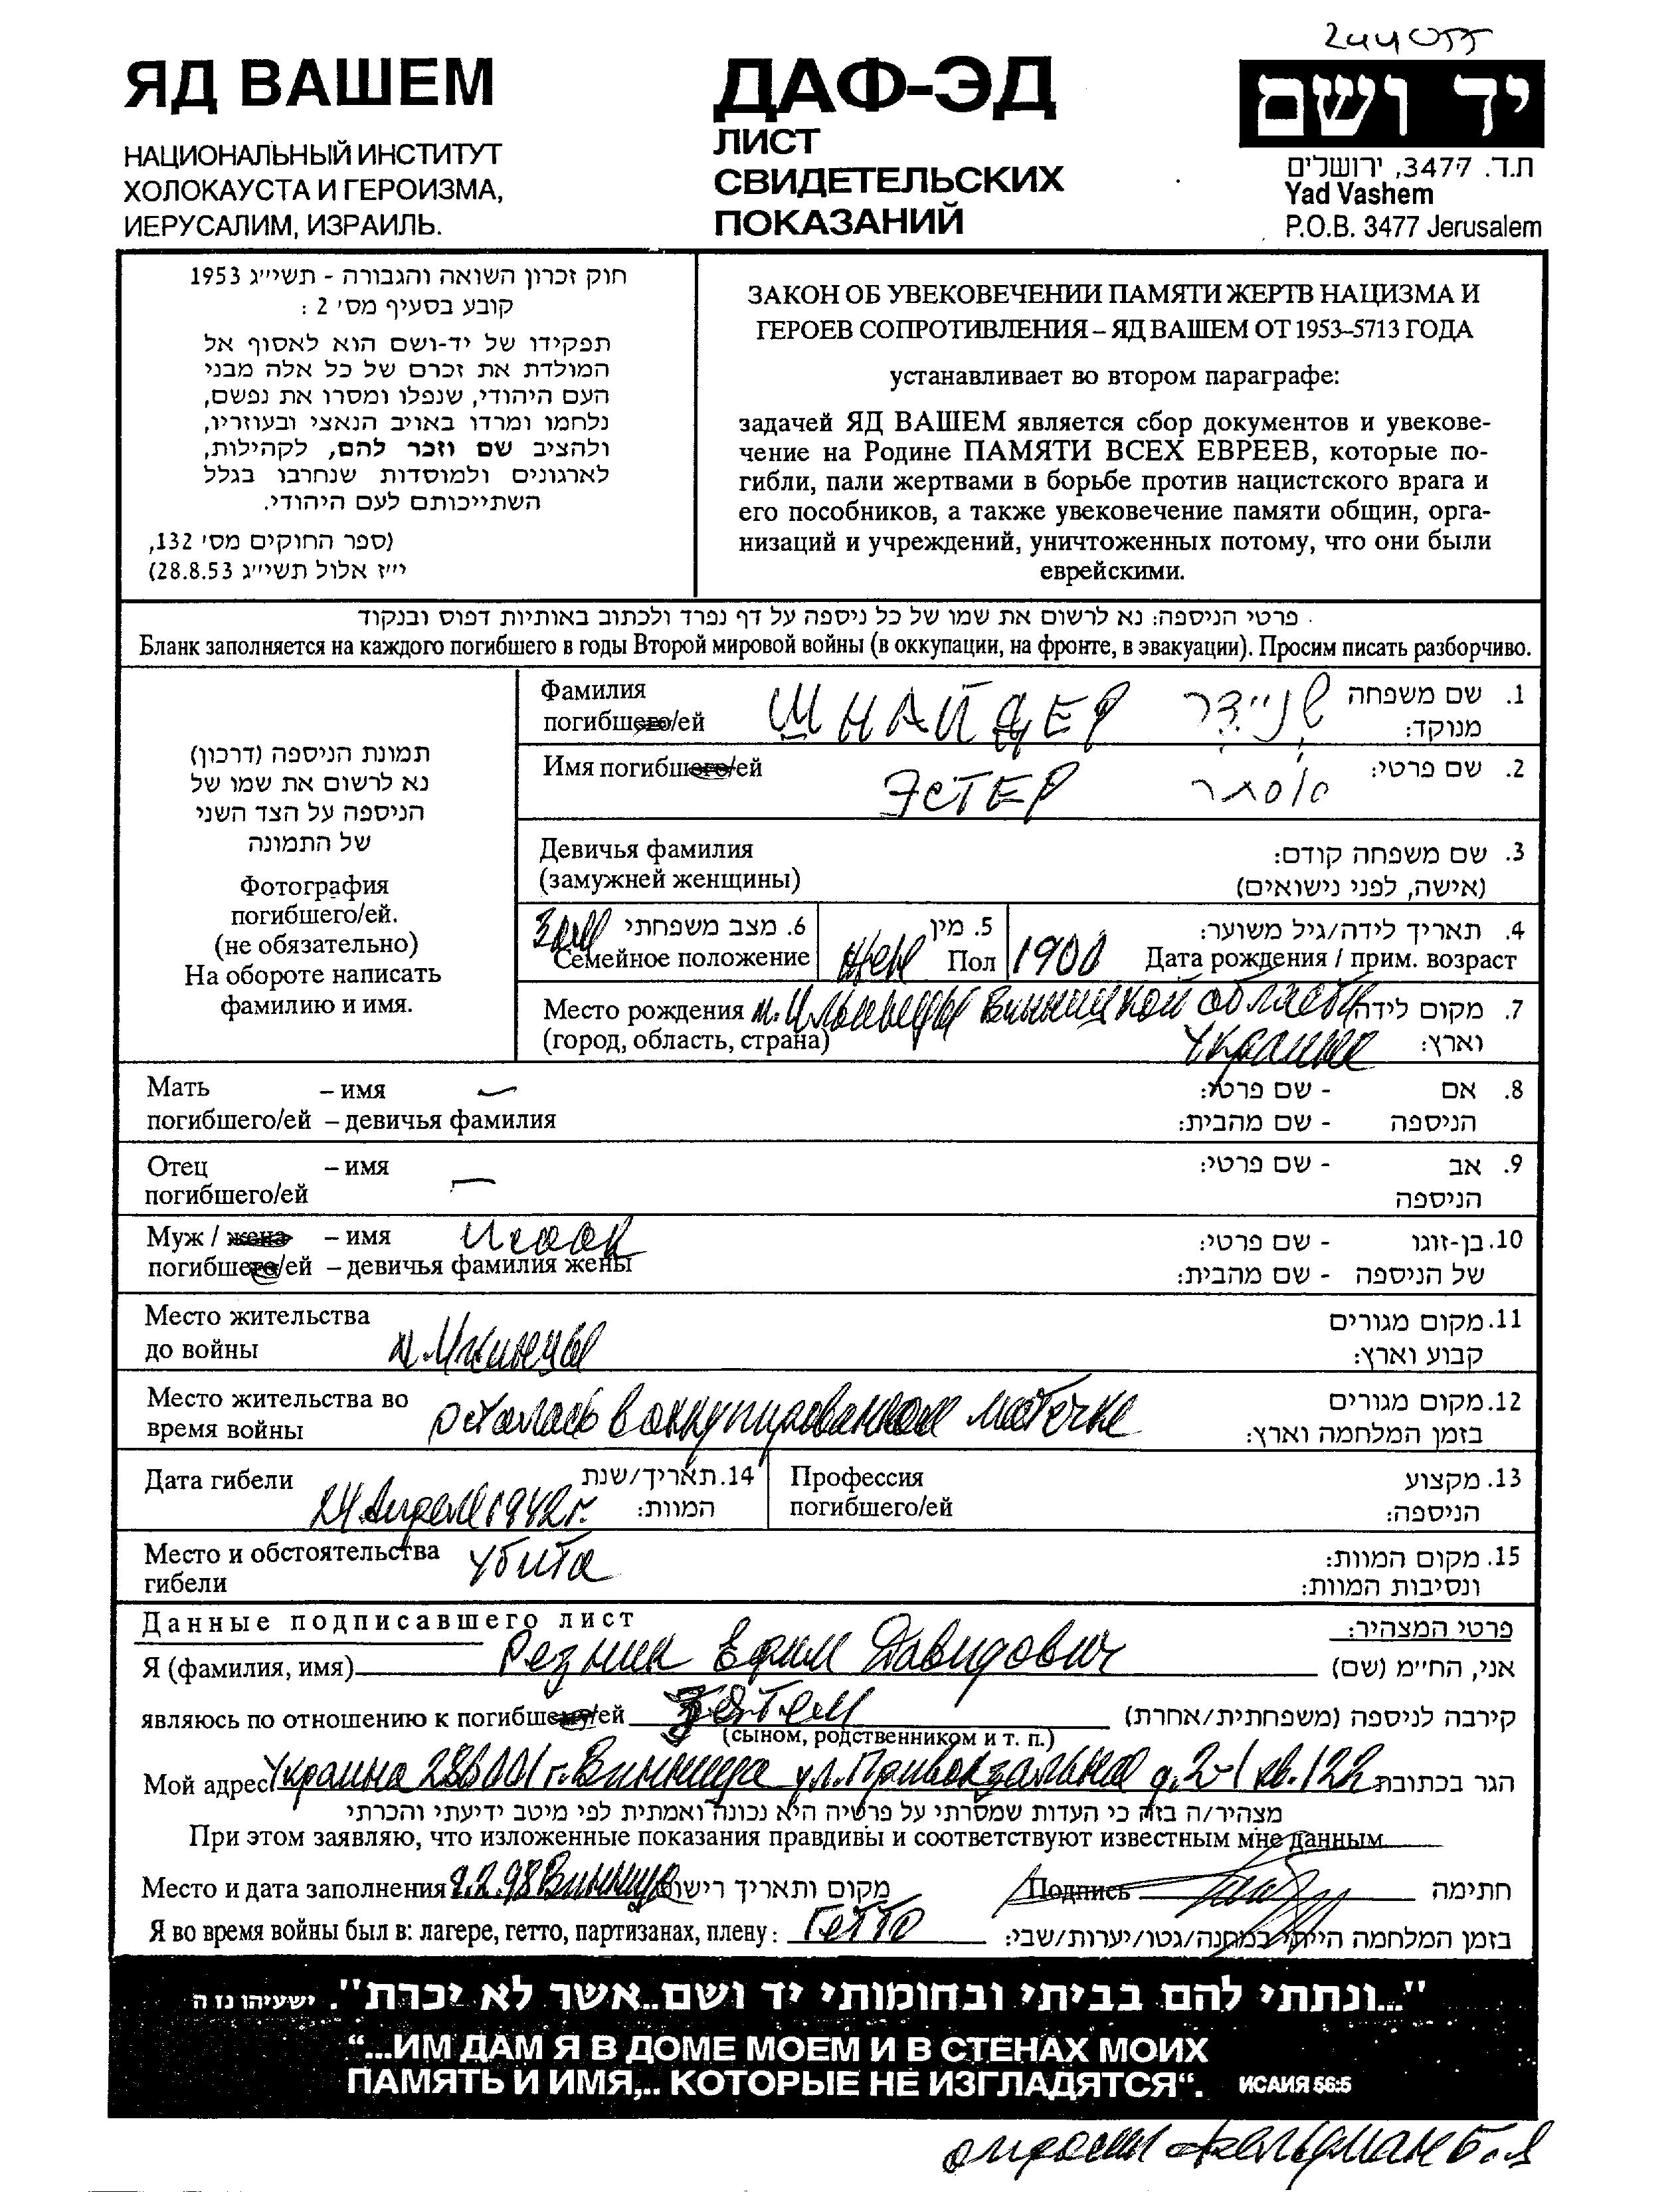 244055
ЯД ВАШЕМ
НАЦИОНАЛЬНЫЙ ИНСТИТУТ
ХОЛОКАУСТА И ГЕРОИЗМА,
ИЕРУСАЛИМ, ИЗРАИЛЬ.
ДАФ-ЭД
ЛИСТ
СВИДЕТЕЛЬСКИХ
ПОКАЗАНИЙ
יד ושם
ת.ד. 3477, ירושלים
Yad Vashem
P.O.B. 3477 Jerusalem
חוק זכרון השואה והגבורה - תשי״ג 1953
קובע בסעיף מס׳ 2 :
תפקידו של יד-ושם הוא לאסוף אל
המולדת את זכרם של כל אלה מבני
העם היהודי, שנפלו ומסרו את נפשם,
נלחמו ומרדו באויב הנאצי ובעוזריו,
ולהציב שם וזכר להם, לקהילות,
לארגונים ולמוסדות שנחרבו בגלל
השתייכותם לעם היהודי.
(ספר החוקים מס׳ 132,
י״ז אלול תשי״ג 28.8.53)
ЗАКОН ОБ УВЕКОВЕЧЕНИИ ПАМЯТИ ЖЕРТВ НАЦИЗМА И
ГЕРОЕВ СОПРОТИВЛЕНИЯ – ЯД ВАШЕМ ОТ 1953–5713 ГОДА
устанавливает во втором параграфе:
задачей ЯД ВАШЕМ является сбор документов и увекове-
чение на Родине ПАМЯТИ ВСЕХ ЕВРЕЕВ, которые по-
гибли, пали жертвами в борьбе против нацистского врага и
его пособников, а также увековечение памяти общин, орга-
низаций и учреждений, уничтоженных потому, что они были
еврейскими.
פרטי הניספה: נא לרשום את שמו של כל ניספה על דף נפרד ולכתוב באותיות דפוס ובנקוד
Бланк заполняется на каждого погибшего в годы Второй мировой войны (в оккупации, на фронте, в эвакуации). Просим писать разборчиво.
תמונת הניספה (דרכון)
נא לרשום את שמו של
הניספה על הצד השני
של התמונה
Фотография
погибшего/ей.
(не обязательно)
На обороте написать
фамилию и имя.
Фамилия ШНАЙДЕР שניידר 1. שם משפחה
погибшего/ей מנוקד:
Имя погибшего/ей ЭСТЕР אסתר 2. שם פרטי:
Девичья фамилия 3. שם משפחה קודם:
(замужней женщины) (אישה, לפני נישואים)
Зам 6. מצב משפחתי 5. מין 4. תאריך לידה/גיל משוער:
Семейное положение жен Пол 1900 Дата рождения / прим. возраст
Место рождения м. Ильинцы Винницкой области 7. מקום לידה
(город, область, страна) Украина וארץ:
Мать – имя – 8. אם - שם פרטי:
погибшего/ей – девичья фамилия הניספה - שם מהבית:
Отец – имя – 9. אב - שם פרטי:
погибшего/ей הניספה
Муж / жена – имя Исаак 10. בן-זוגו - שם פרטי:
погибшего/ей – девичья фамилия жены של הניספה - שם מהבית:
Место жительства 11. מקום מגורים
до войны м. Ильинцы קבוע וארץ:
Место жительства во 12. מקום מגורים
время войны осталась в оккупированном местечке בזמן המלחמה וארץ:
Дата гибели 14. תאריך/שנת Профессия 13. מקצוע
24 Апреля 1942 г. המוות: погибшего/ей הניספה:
Место и обстоятельства убита 15. מקום המוות:
гибели ונסיבות המוות:
Данные подписавшего лист פרטי המצהיר:
Я (фамилия, имя) Резник Ефим Давидович אני, הח״מ (שם)
являюсь по отношению к погибшему/ей Зятем קירבה לניספה (משפחתית/אחרת)
(сыном, родственником и т. п.)
Мой адрес Украина 286001 г. Винница ул. Привокзальная д. 2-1 кв. 122 הגר בכתובת
מצהיר/ה בזה כי העדות שמסרתי על פרטיה היא נכונה ואמתית לפי מיטב ידיעתי והכרתי
При этом заявляю, что изложенные показания правдивы и соответствуют известным мне данным
Место и дата заполнения 9.2.98 Винница מקום ותאריך רישום Подпись חתימה
Я во время войны был в: лагере, гетто, партизанах, плену: Гетто בזמן המלחמה הייתי במחנה/גטו/יערות/שבי:
"...ונתתי להם בביתי ובחומותי יד ושם..אשר לא יכרת". ישעיהו נו ה
“...ИМ ДАМ Я В ДОМЕ МОЕМ И В СТЕНАХ МОИХ
ПАМЯТЬ И ИМЯ,.. КОТОРЫЕ НЕ ИЗГЛАДЯТСЯ“. ИСАИЯ 56:5
опросил Фельдман Б.